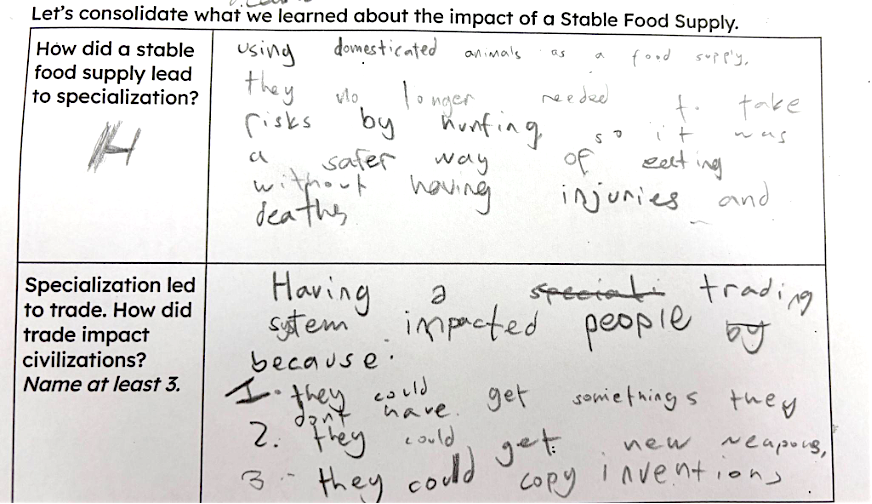 Let's consolidate what we learned about the impact of a Stable Food Supply.
How did a stable
food supply lead
to specialization?
14
using domesticated animals as a food supply,
they no longer needed to take
risks by hunting so it was
a safer way of eating
without having injuries and
deaths
Specialization led
to trade. How did
trade impact
civilizations?
Name at least 3.
Having a speciali trading
system impacted people by
because:
1. they could get somethings they
dont have.
2. they could get new weapons,
3 - they could copy inventions